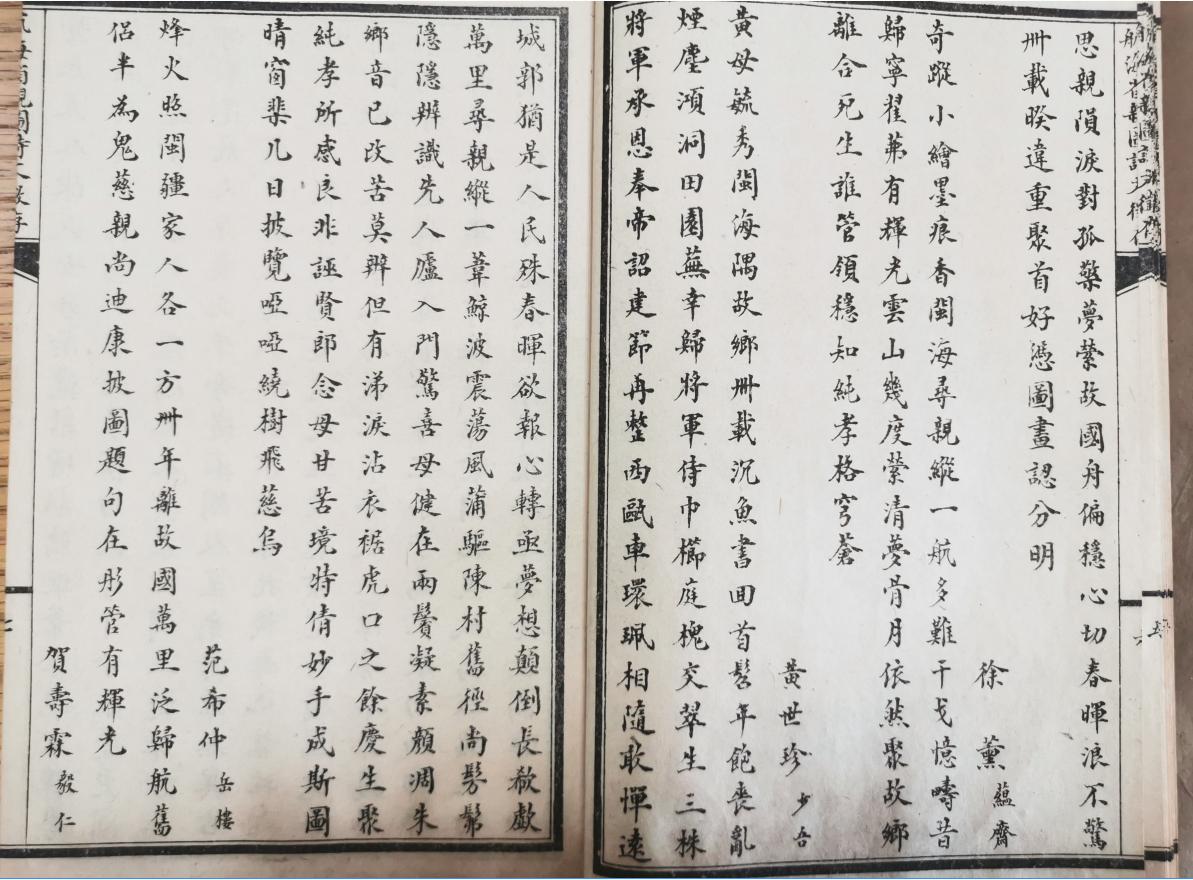 思親隕淚對孤檠夢縈故國舟偏穩心切春暉浪不驚
卅載暌違重聚首好憑圖畫認分明
徐薰蘊齋
奇蹤小繪墨痕香閩海尋親縱一航多難干戈憶疇昔
歸寧翟茀有輝光雲山幾度縈清夢骨月依然聚故鄉
離合死生誰管領穩知純孝格穹蒼
黄世珍少吾
黄母毓秀閩海隅故鄉卅載沉魚書回首髫年飽喪亂
煙塵澒洞田園蕪幸歸將軍侍巾櫛庭槐交翠生三株
將軍承恩奉帝詔建節再整西甌車環珮相隨敢憚遠
城郭猶是人民殊春暉欲報心轉亟夢想顛倒長欷歔
萬里尋親縱一葦鯨波震蕩風蒲驅陳村舊徑尚髣髴
隱隱辨識先人廬入門驚喜母健在兩鬢凝素顏凋朱
鄉音已改苦莫辨但有涕淚沾衣裾虎口之餘慶生聚
純孝所感良非誣賢郎念母甘苦境特倩妙手成斯圖
晴窗棐几日披覽啞啞繞樹飛慈烏
范希仲岳樓
烽火照閩疆家人各一方卅年離故國萬里泛歸航舊
侶半為鬼慈親尚迪康披圖題句在彤管有輝光
賀壽霖毅仁